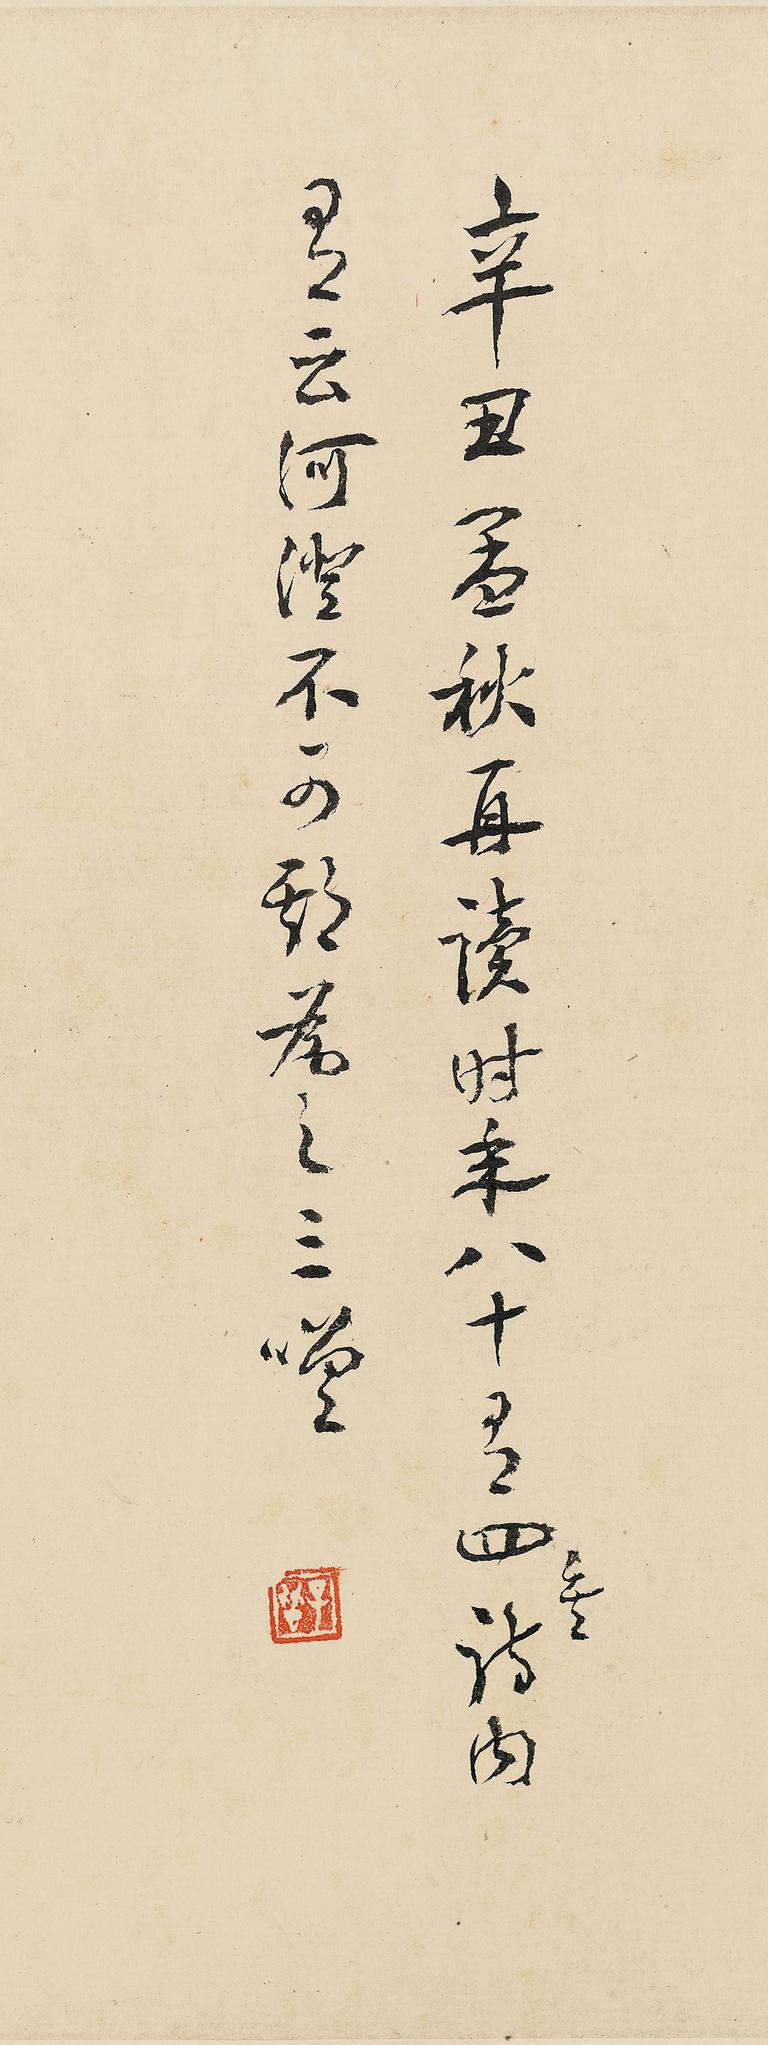 辛丑孟秋再讀時年八十有四其詩內
有云河澄不可期為之三嘆